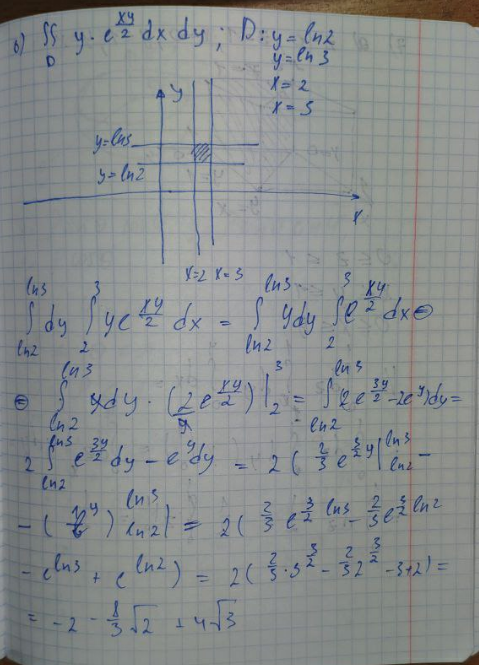 б) ∬_D y · e^{xy/2} dx dy ; D: y = ln2
y = ln3
x = 2
x = 3
y
y=ln3
y=ln2
x
x=2 x=3
∫_{ln2}^{ln3} dy ∫_2^3 y e^{xy/2} dx = ∫_{ln2}^{ln3} y dy ∫_2^3 e^{xy/2} dx ⊜
⊜ ∫_{ln2}^{ln3} y dy · (2/y e^{xy/2}) |_2^3 = ∫_{ln2}^{ln3} (2e^{3y/2} - 2e^y) dy =
2 ∫_{ln2}^{ln3} e^{3y/2} dy - e^y dy = 2 ( 2/3 e^{3/2 y} |_{ln2}^{ln3} -
- ( e^y ) |_{ln2}^{ln3} ) = 2 ( 2/3 e^{3/2 ln3} - 2/3 e^{3/2 ln2}
- e^{ln3} + e^{ln2} ) = 2 ( 2/3 · 3^{3/2} - 2/3 2^{3/2} - 3 + 2 ) =
= -2 - 8/3 √2 + 4√3